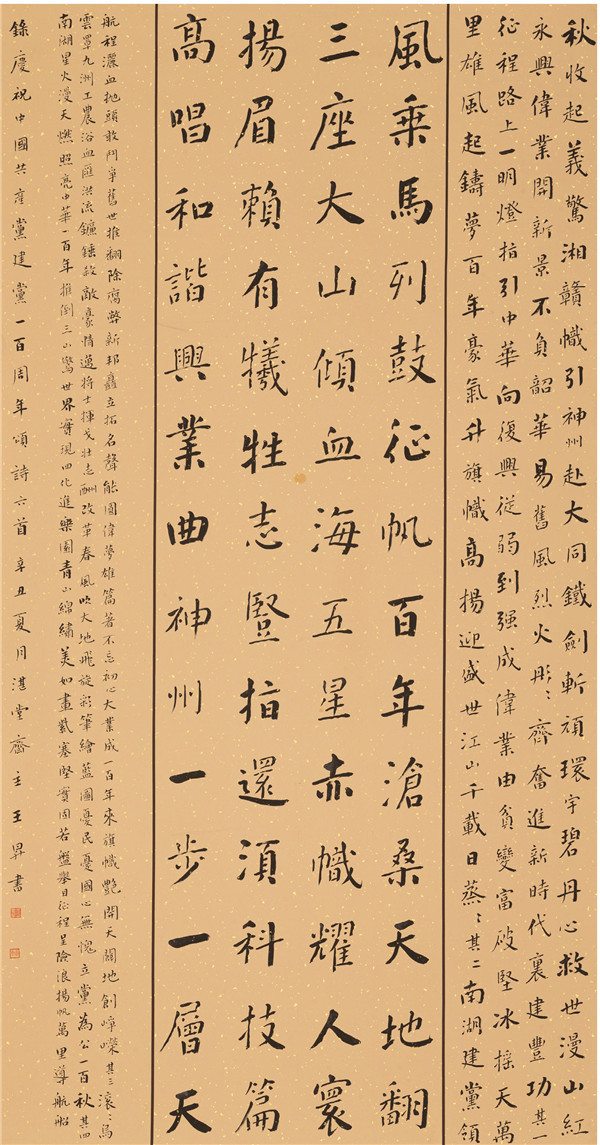 秋收起義驚湘贛幟引神州赴大同鐵劍斬頑環宇碧丹心救世漫山紅
永興偉業開新景不負韶華易舊風烈火彤彡齊奮進新時代裏建豐功其一
征程路上一明燈指引中華向復興從弱到强成偉業由貧變富破堅冰摇天萬
里雄風起鑄夢百年豪氣升旗幟高揚迎盛世江山千載日蒸〻其二南湖建黨領
風乘馬列鼓征帆百年滄桑天地翻
三座大山傾血海五星赤幟耀人寰
揚眉賴有犧牲志竪指還須科技篇
高唱和諧興業曲神州一步一層天
航程灑血抛頭敢鬥爭舊世推翻除腐弊新邦矗立拓名聲能圓偉夢雄篇著不忘初心大業成一百年來旗幟艷開天闢地創崢嶸其三滚〻烏
雲罩九洲工農浴血匯洪流鐮錘殺敵豪情邁將士揮戈壯志酬改革春風吹大地飛旋彩筆繪藍圖憂民憂國心無愧立黨為公一百秋其四
南湖星火漫天燃照亮中華一百年推倒三山驚世界實現四化進樂園青山綿繡美如畫要塞堅實固若盤舉目征程呈險浪揚帆萬里導航船
錄慶祝中國共產黨建黨一百周年頌詩六首辛丑夏月湛堂齋主王昇書